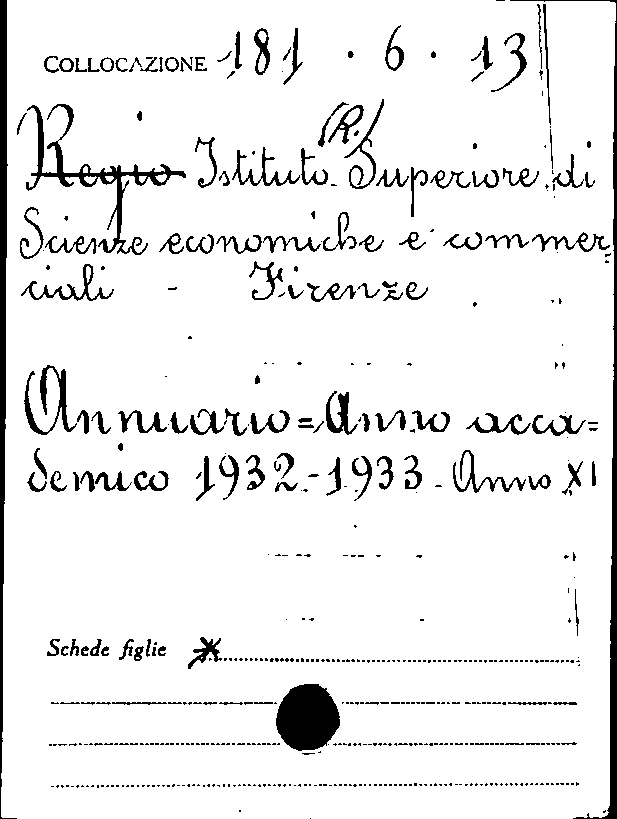 COLLOCAZIONE 181 . 6 . 13
(R.)
Regio Istituto Superiore di
Scienze economiche e commer=
ciali - Firenze
Annuario=Anno acca=
demico 1932-1933. Anno XI
Schede figlie *